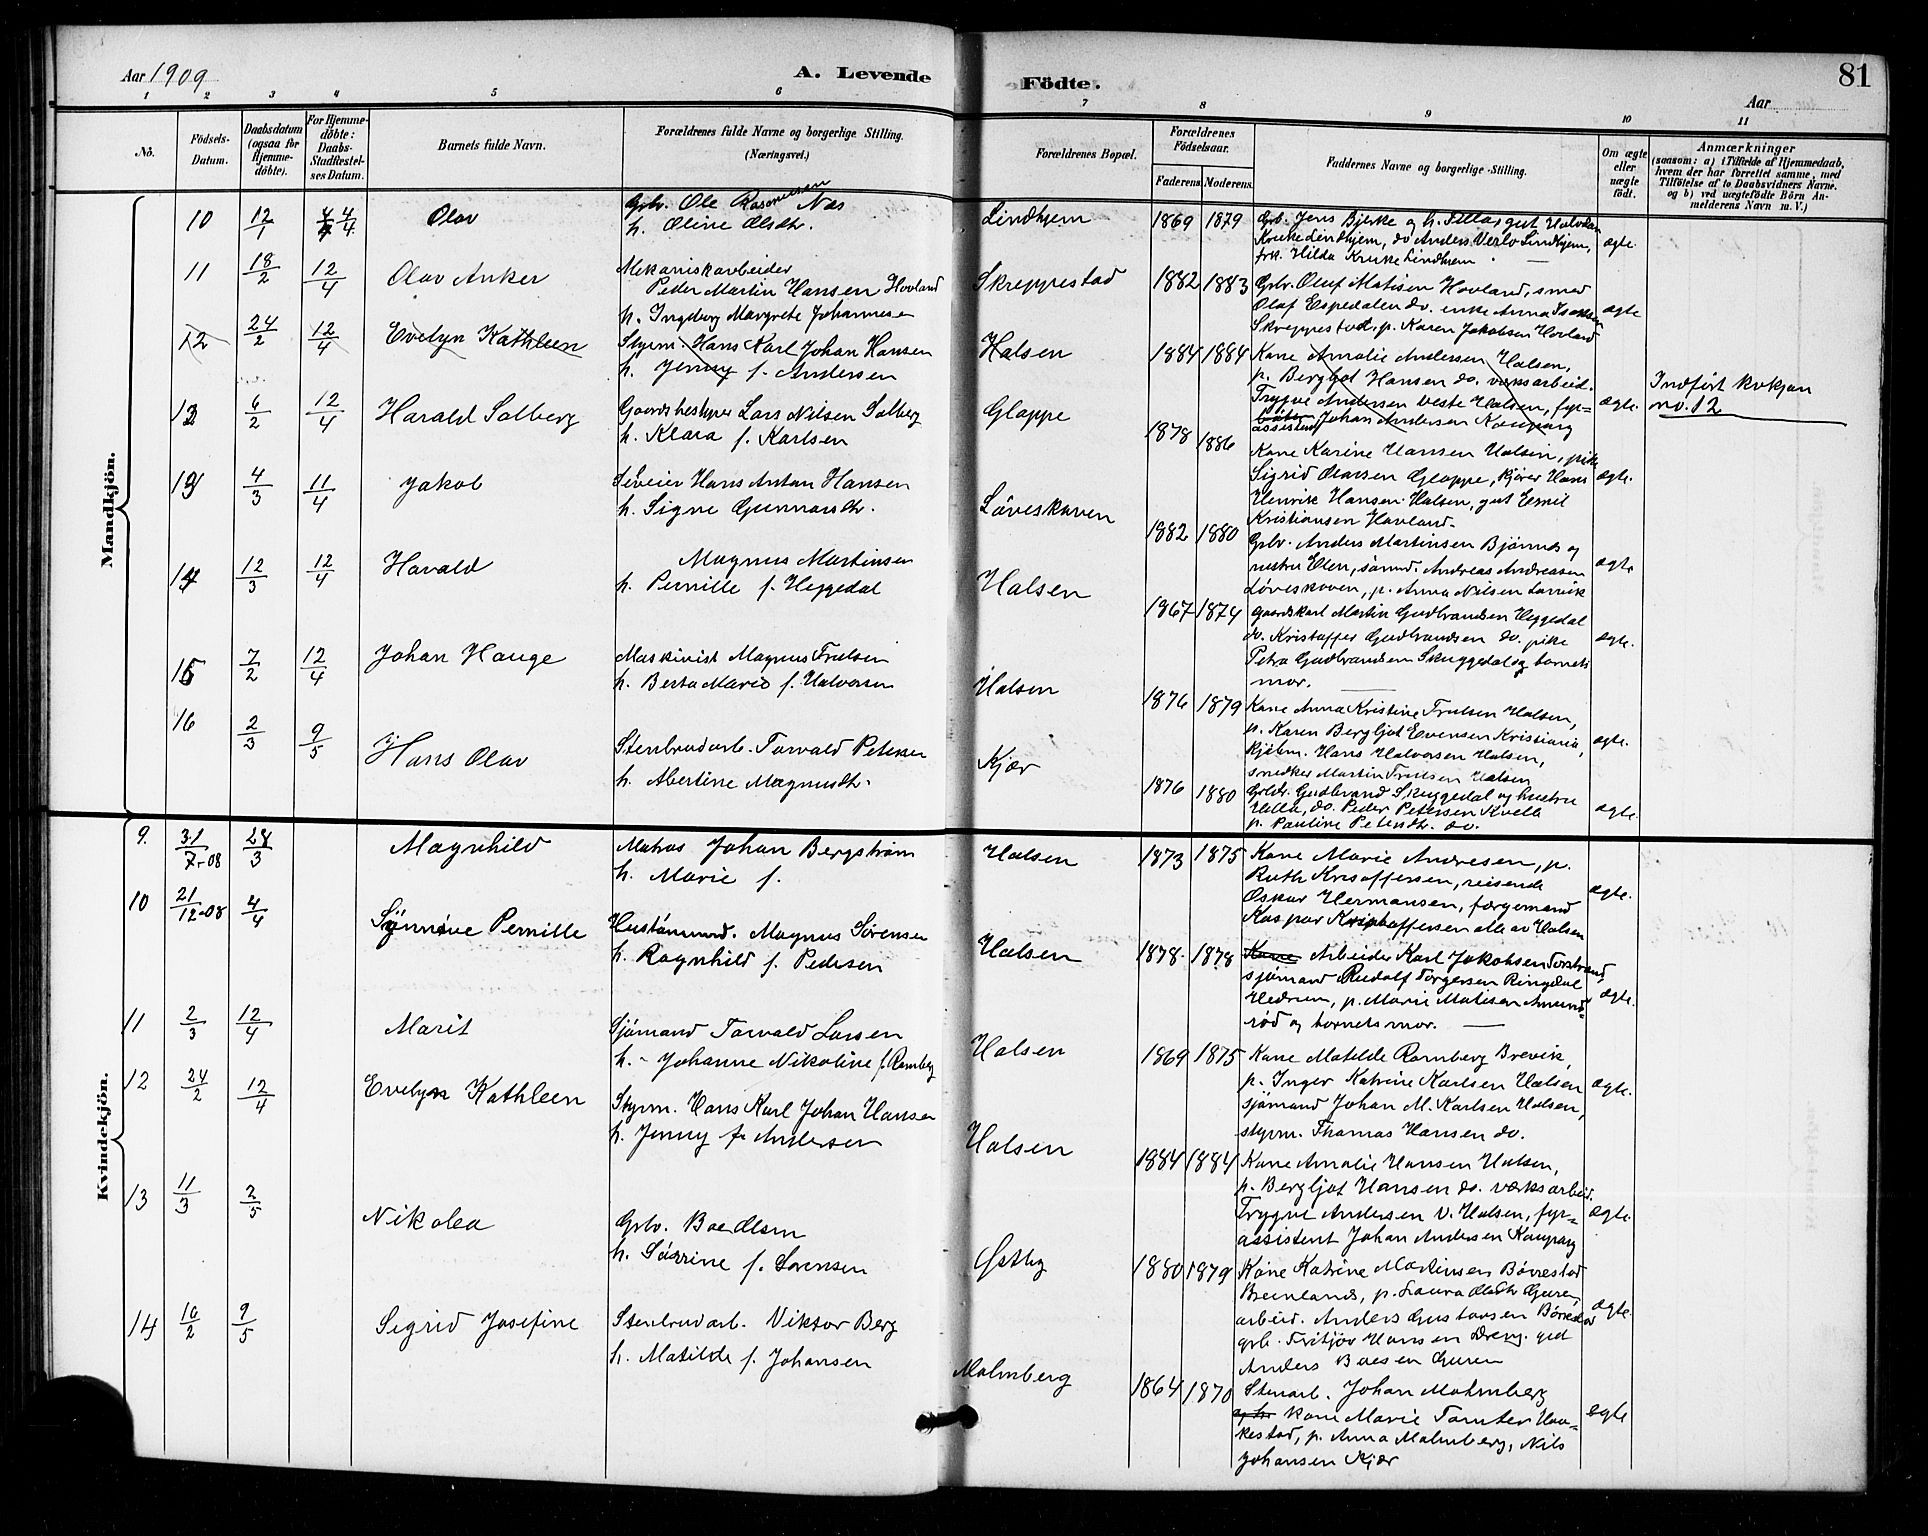 Aar 1909
A. Levende
Födte.
81
Aar
1 2 3 4 5 6 7 8 9 10 11
No.
Födsels-
Datum.
Daabsdatum
(ogsaa for
Hjemme-
döbte).
For Hjemme-
döbte:
Daabs-
Stadfæstel-
ses Datum.
Barnets fulde Navn.
Forældrenes fulde Navne og borgerlige Stilling.
(Næringsvei.)
Forældrenes Bopæl.
Forældrenes
Födselsaar.
Faderens Moderens.
Faddernes Navne og borgerlige Stilling.
Om ægte
eller
uægte
födt.
Anmærkninger
(saasom: a) i Tilfælde af Hjemmedaab,
hvem der har forrettet samme, med
Tilföielse af to Daabsvidners Navne.
og b) ved uægtefödte Börn An-
melderens Navn m. V.)
Mandkjön.
10 12/1 4/4 Olav
Grbr. Ole Rasmussen Næs
h. Oline Olsdtr.
Lindhjem 1869 1879
Grb. Jens Bjerke og h. Tilla, gut Halvdan
Kruke Lindhjem, do Anders Verlo Lindhjem,
frk. Hilda Kruke Lindhjem
ægte
11 18/2 12/4 Olav Anker
Mekaniskarbeider
Peder Martin Hansen Hovland
h. Ingeborg Margrete Johannesen
Skreppestad 1882 1883
Grbr. Oluf Matisen Hovland, smed
Olaf Espedalen do. enke Anna Isaksen
Skreppestad, p. Karen Jakobsen Hovland
ægte
12 24/2 12/4 Evelyn Kathleen
Styrm. Hans Karl Johan Hansen
h. Jenny f. Andersen
Halsen 1884 1884
Kone Amalie Andersen Halsen,
p. Bergljot Hansen do. væksarbeid.
Trygve Andersen Veste Halsen, fyr-
assistent Johan Andersen Kaupang
ægte.
Indført kvkjøn
no. 12
12 6/2 12/4 Harald Solberg
Gaardsbestyrer Lars Nilsen Solberg
h. Klara f. Karlsen
Gloppe 1878 1886
Kone Karine Hansen Halsen, pike
Sigrid Olausen Gloppe, kjører Hans
Henrik Hansen Halsen, gut Emil
Kristiansen Hovland.
ægte.
13 4/3 11/4 Jakob
Leveier Hans Anton Hansen
h. Signe Gunnarsdtr.
Løveskoven 1882 1880
Grbr. Anders Martinsen Bjønnes og
hustru Elen, sømd. Andreas Andreasen
Løveskoven, p. Anna Nilsen Larvik
ægte
14 12/3 12/4 Harald
Magnus Martinsen
h. Pernille f. Heggedal
Halsen 1867 1874
Gaardskarl Martin Gudbrandsen Heggedal
do. Kristoffer Gudbrandsen do. pike
Petra Gudbrandsen Skuggedal og barnets
mor.
ægte.
15 7/2 12/4 Johan Hauge
Maskinist Magnus Trulsen
h. Berta Marie f. Halvorsen
Halsen 1876 1879
Kone Anna Kristine Trulsen Halsen,
p. Karen Bergljot Evensen Kristiania,
kjøbm. Hans Halvorsen Halsen,
snedker Martin Trulsen Halsen
ægte.
16 2/3 9/5 Hans Olav
Stenbrudarb. Torvald Petersen
h. Albertine Magnusdtr.
Kjær 1876 1880
Grbr. Gudbrand Skuggedal og hustru
Helle, do. Peder Petersen Kvelle
p. Pauline Petersdtr. do.
ægte.
Kvindekjön.
9. 31/7-08 28/3 Magnhild
Matros Johan Bergstrøm
h. Marie f.
Halsen 1873 1875
Kone Marie Andresen, p.
Ruth Kristoffersen, reisende
Oskar Hermansen, færgemand
Kaspar Kristoffersen alle av Halsen
ægte.
10 21/12-08 4/4 Synnøve Pernille
Hustømmerm. Magnus Sørensen
h. Ragnhild f. Pedersen
Halsen 1878. 1878
Kone Arbeider Karl Jakobsen Torstrand,
sjømand Rudolf Torgersen Ringdal
Hedrum, p. Marie Matisen Amund-
rød og barnets mor.
ægte.
11 2/3 12/4 Marit
Sjømand Torvald Larsen
h. - Johanne Nikoline f. Ramberg
Halsen 1869 1875
Kone Matilde Ramberg Brevik,
p. Inger Katrine Karlsen Halsen
sjømand Johan M. Karlsen Halsen,
styrm. Thomas Hansen do.
ægte.
12 24/2 12/4 Evelyn Kathleen
Styrm. Hans Karl Johan Hansen
h. Jenny f. Andersen
Halsen 1884 1884
Kone Amalie Hansen Halsen,
p. Bergljot Hansen do. væksarbeid.
Trygve Andersen V. Halsen, fyr-
assistent Johan Andersen Kaupang
ægte.
13 11/3 2/5 Nikolea
Grbr. Boe Olsen
h. Sørine f. Sørensen
Østby 1880 1879
Kone Katrine Martinsen Børrestad
Brunlanes, p. Laura Olsdtr Guren,
arbeid. Anders Gustavsen Børrestad
grb. Fritjov Hansen Dreng. gut
Anders Boesen Guren
ægte.
14 10/2 9/5 Sigrid Josefine
Stenbrudarb. Viktor Berg
h. Matilde f. Johansen
Malmberg 1864 1870
Stenarb. Johan Malmberg
og h. kone Marie Tomter Hav-
kestad, p. Anna Malmberg, Nils
Johansen Kjær
ægte